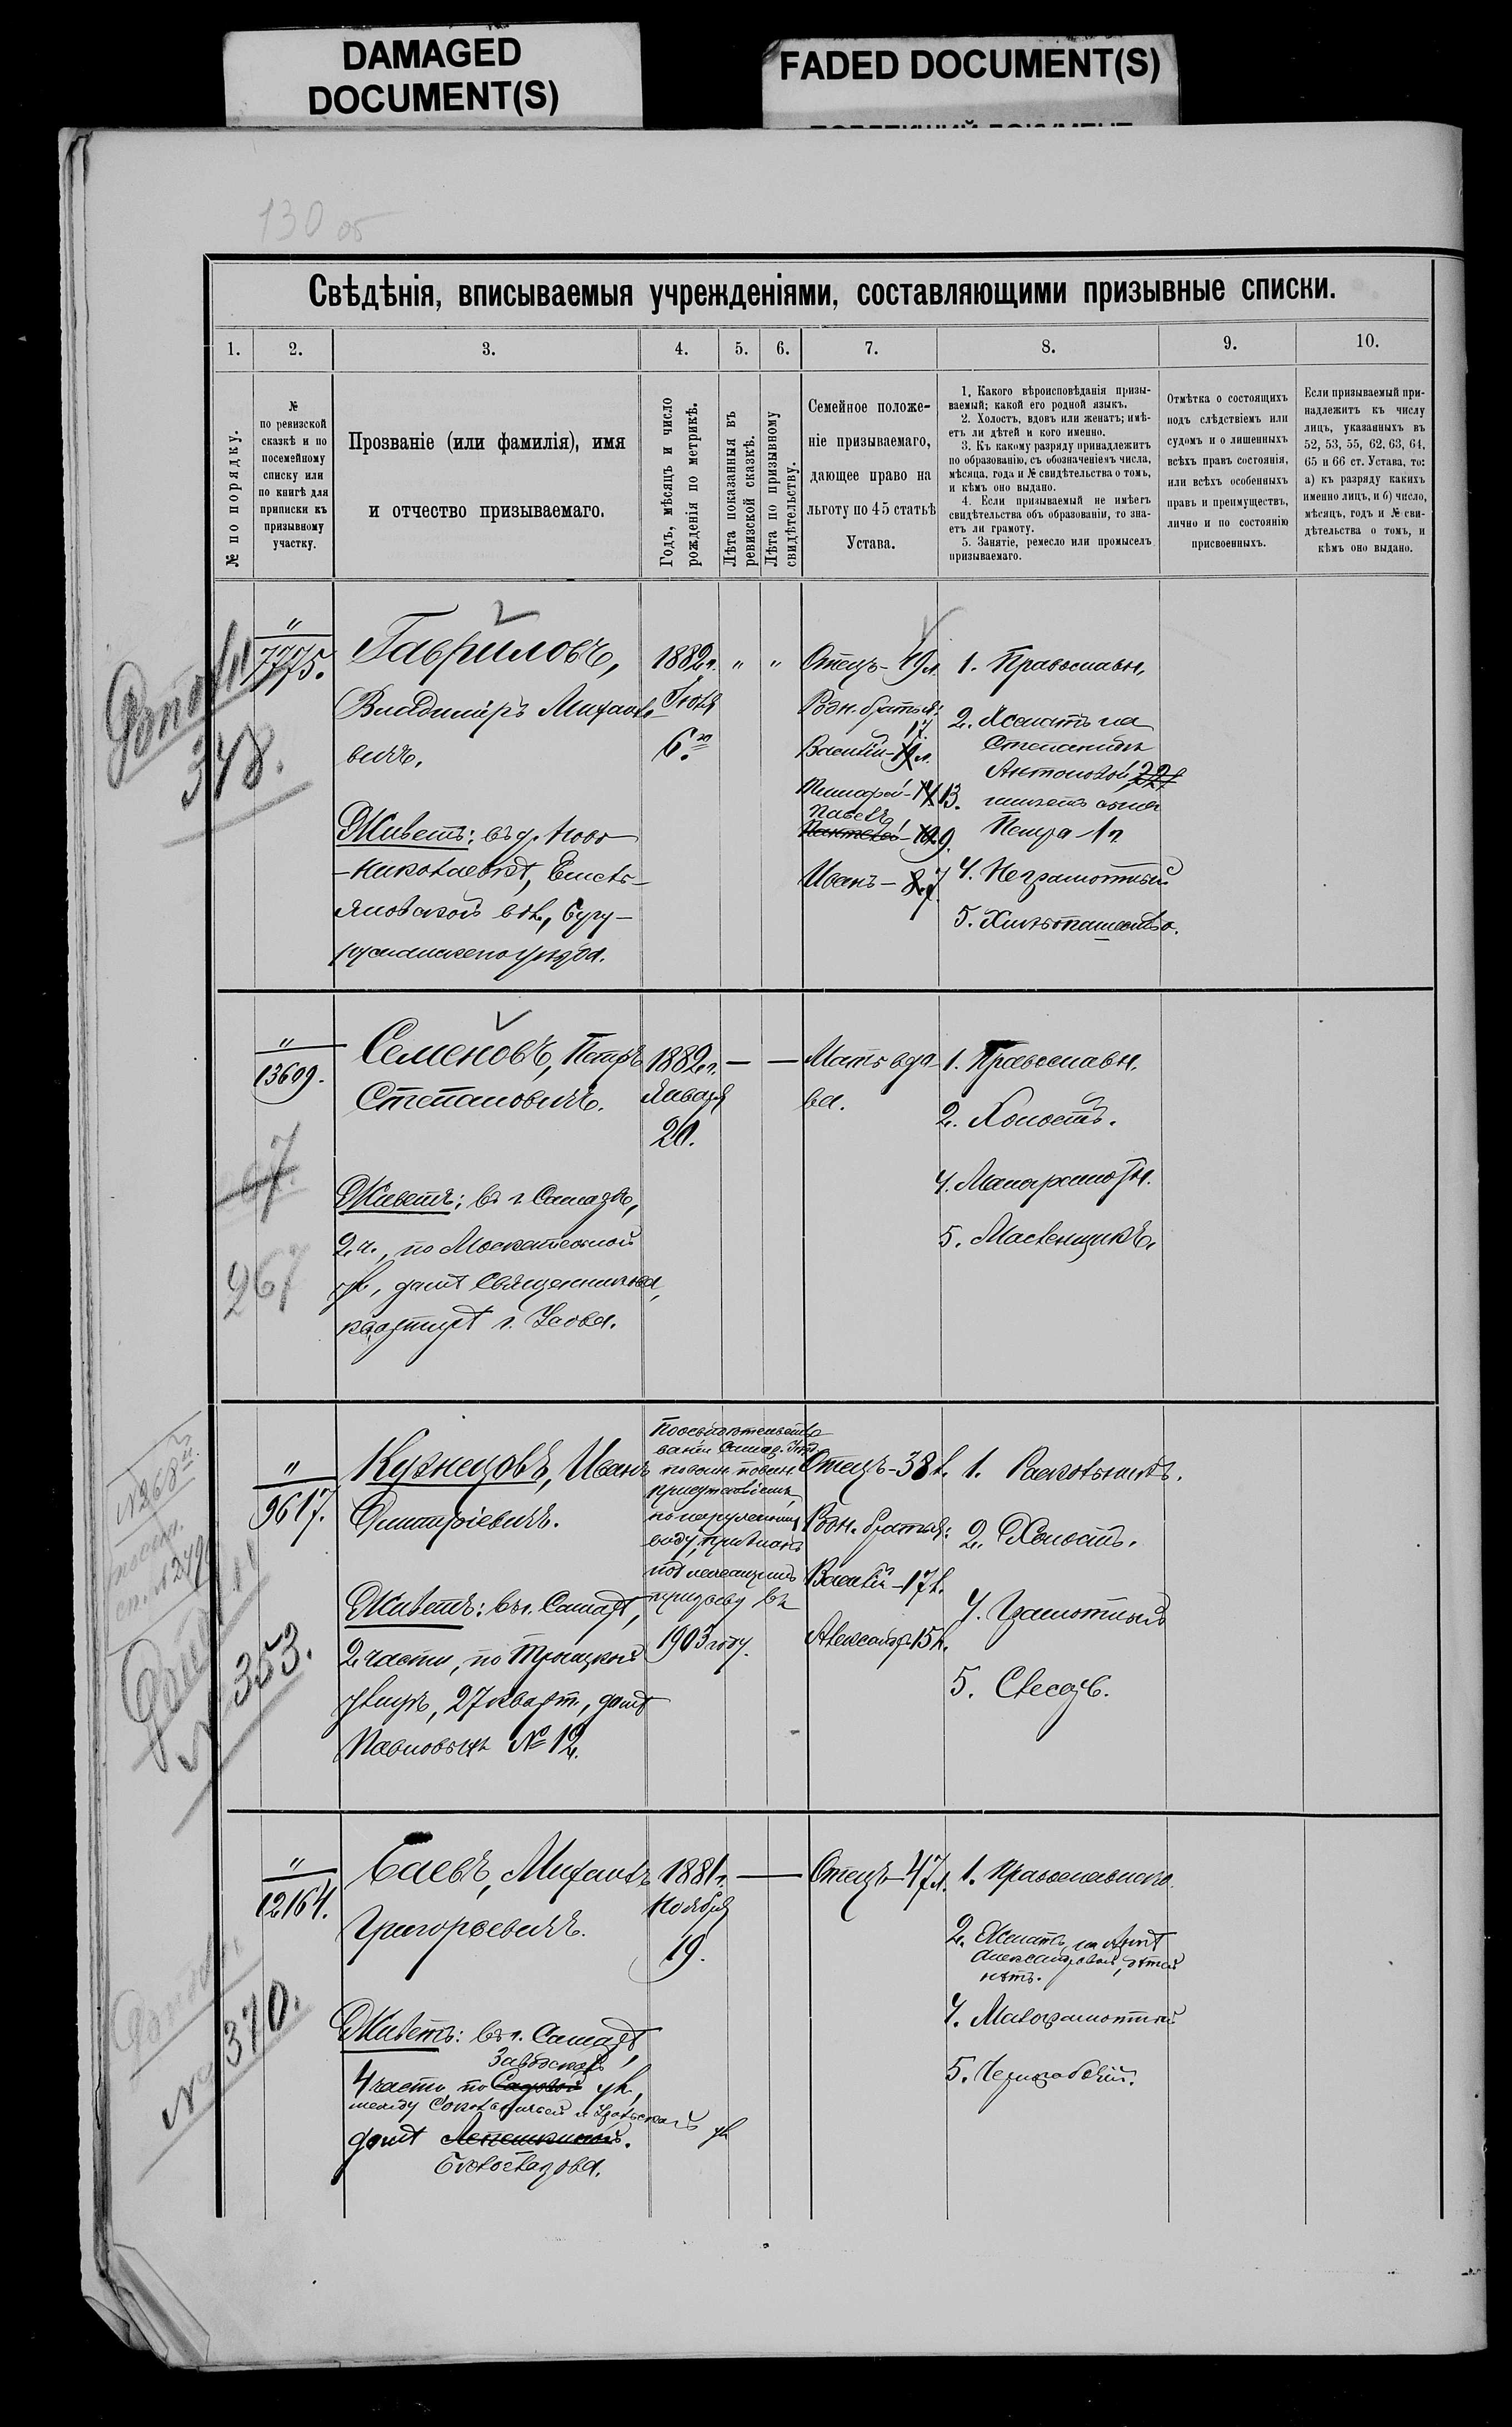 DAMAGED
DOCUMENT(S)
FADED DOCUMENT(S)
130 об
Свѣдѣнія, вписываемыя учрежденіями, составляющими призывные списки.
1.
2.
3.
4.
5.
6.
7.
8.
9.
10.
№ по порядку.
№
по ревизской
сказкѣ и по
посемейному
списку или
по книгѣ для
приписки къ
призывному
участку.
Прозваніе (или фамилія), имя
и отчество призываемаго.
Годъ, мѣсяцъ и число
рожденія по метрикѣ.
Лѣта показанныя въ
ревизской сказкѣ.
Лѣта по призывному
свидѣтельству.
Семейное положе-
ніе призываемаго,
дающее право на
льготу по 45 статьѣ
Устава.
1. Какого вѣроисповѣданія призы-
ваемый; какой его родной языкъ.
2. Холостъ, вдовъ или женатъ; имѣ-
етъ ли дѣтей и кого именно.
3. Къ какому разряду принадлежитъ
по образованію, съ обозначеніемъ числа,
мѣсяца, года и № свидѣтельства о томъ,
и кѣмъ оно выдано.
4. Если призываемый не имѣетъ
свидѣтельства объ образованіи, то зна-
етъ ли грамоту.
5. Занятіе, ремесло или промыселъ
призываемаго.
Отмѣтка о состоящихъ
подъ слѣдствіемъ или
судомъ и о лишенныхъ
всѣхъ правъ состоянія,
или всѣхъ особенныхъ
правъ и преимуществъ,
лично и по состоянію
присвоенныхъ.
Если призываемый при-
надлежитъ къ числу
лицъ, указанныхъ въ
52, 53, 55, 62, 63, 64,
65 и 66 ст. Устава, то:
а) къ разряду какихъ
именно лицъ, и б) число,
мѣсяцъ, годъ и № сви-
дѣтельства о томъ, и
кѣмъ оно выдано.
348.
"
7775.
Гавриловъ,
Владиміръ Михайло-
вичъ.
Живетъ: въ д. Ново
-Николаевкѣ,
вол., Бугу-
русланскаго уѣзда.
1882 г.
Іюля
6.го
"
"
Отецъ - 49 л.
Родн. братья:
17.
Василій - 19 л.
Тимофей - 14 13.
Павелъ
Пантелей - 10 9.
Иванъ - 8 7.
1. Православн.
2. Женатъ на
Степанидѣ
Антоновой 22
имѣетъ сына
Петра - 1 г.
4. Неграмотный
5. Хлѣбопашество.
"
13609.
7
267
Семеновъ, Петръ
Степановичъ.
Живетъ: въ г. Самарѣ,
2 ч., по Москательной
ул., домъ Священникова,
квартира г. Усова.
1882 г.
Января
20.
—
—
Мать вдо-
ва.
1. Православн.
2. Холостъ.
4. Малограмотн.
5. Масленщикъ.
№ 268
№ 353.
"
9617.
Кузнецовъ, Иванъ
Дмитріевичъ.
Живетъ: въ г. Самарѣ,
2 части, по Троицкой
улицѣ, 27 кварт., домъ
Павловыхъ № 12.
По освидѣтельство-
ваніи Самар. Уѣзд.
по воин. повин.
присутствіемъ,
по наружному
виду, признанъ
подлежащимъ
призыву въ
1903 году.
Отецъ - 38 л.
Родн. братья:
Василій - 17 л.
Александръ 15 л.
1. Раскольникъ.
2. Холостъ.
4. Грамотный
5. Слесарь.
№ 370.
"
12164.
Баевъ, Михаилъ
Григорьевичъ.
Живетъ: въ г. Самарѣ,
Заводской
4 части, по Садовой ул.,
между Соколичьей и Уральской ул
домъ Лепешкиной.
1881 г.
Ноября
19.
—
Отецъ - 47 л.
1. Православнаго.
2. Женатъ на Аннѣ
Александровой, дѣтей
нѣтъ.
4. Малограмотный
5. Чернорабочій.